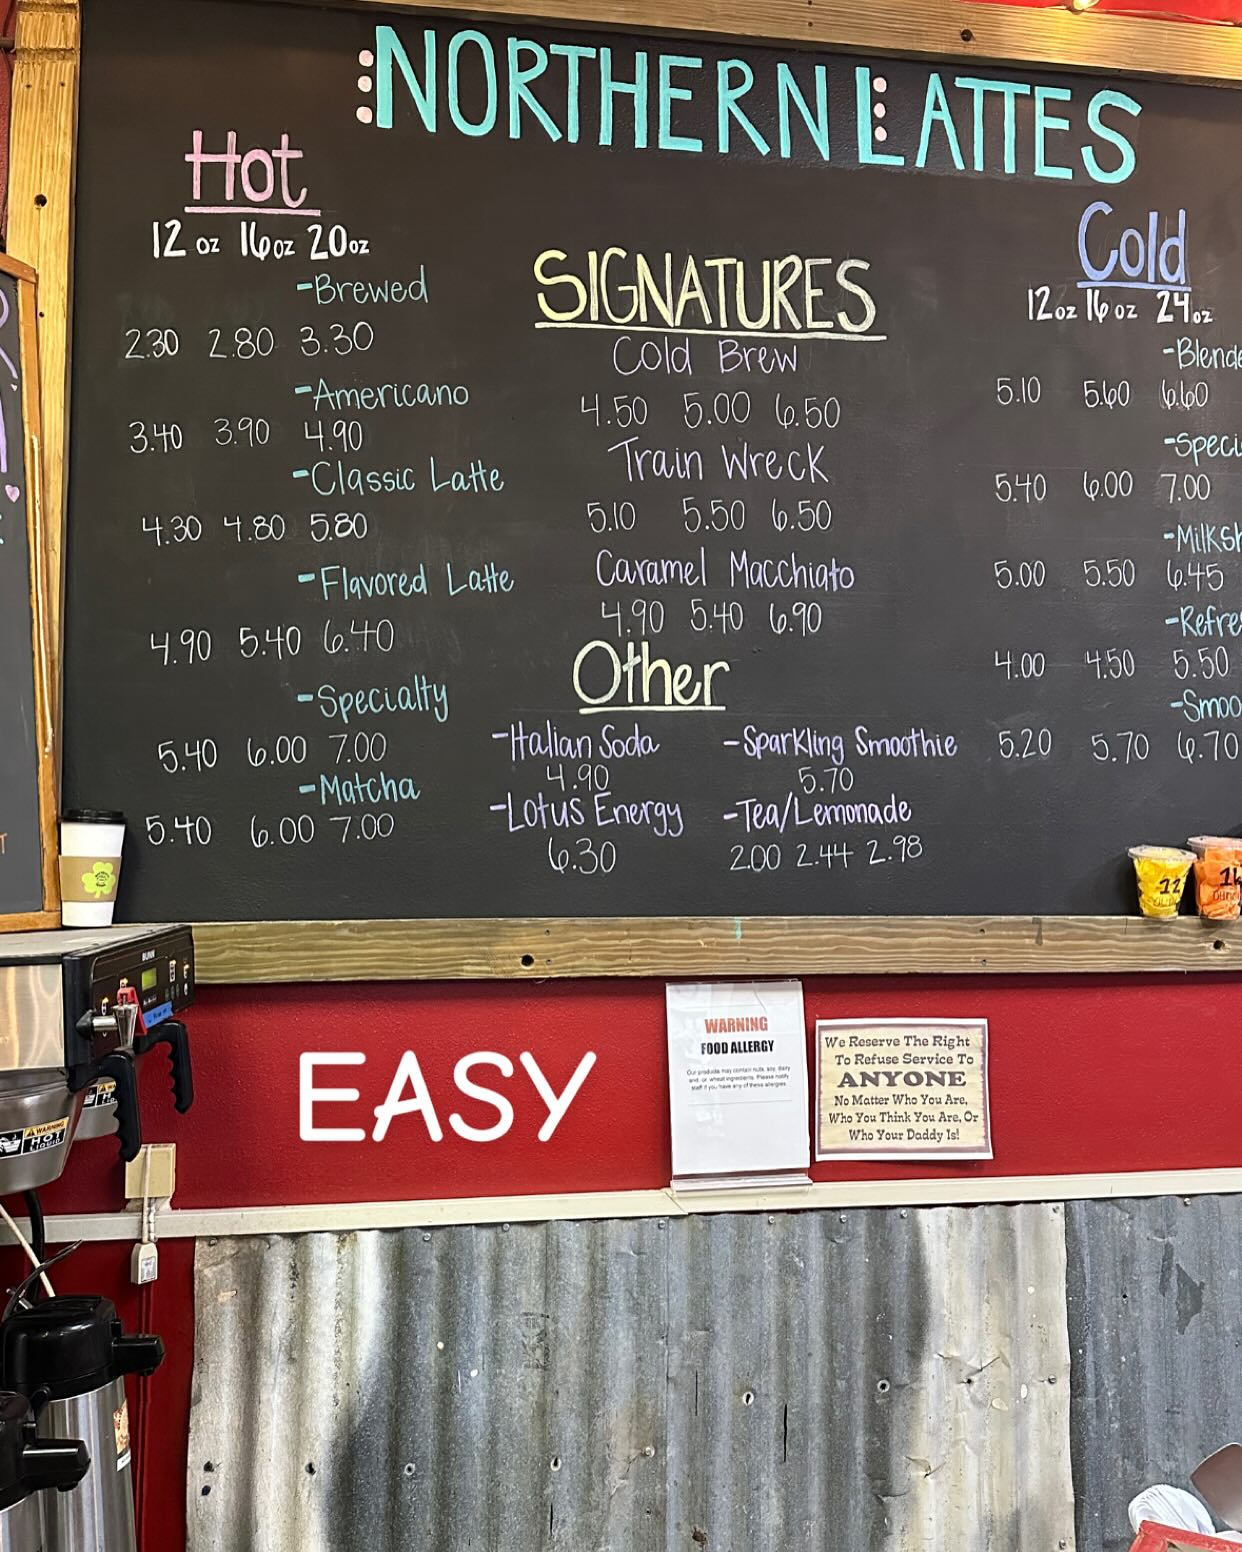 NORTHERN LATTES
Hot
12 oz 16 oz 20 oz
-Brewed
2.30 2.80 3.30
-Americano
3.40 3.90 4.90
-Classic Latte
4.30 4.80 5.80
-Flavored Latte
4.90 5.40 6.40
-Specialty
5.40 6.00 7.00
-Matcha
5.40 6.00 7.00
SIGNATURES
Cold Brew
4.50 5.00 6.50
Train Wreck
5.10 5.50 6.50
Caramel Macchiato
4.90 5.40 6.90
Other
-Italian Soda
4.90
-Lotus Energy
6.30
-Sparkling Smoothie
5.70
-Tea/Lemonade
2.00 2.44 2.98
Cold
12oz 16 oz 24oz
-Blende
5.10 5.60 6.60
-Speci
5.40 6.00 7.00
-Milksh
5.00 5.50 6.45
-Refre
4.00 4.50 5.50
-Smoo
5.20 5.70 6.70
12
16
BUNN
WARNING
HOT
LIQUID
EASY
WARNING
FOOD ALLERGY
Our products may contain nuts, soy, dairy
and, or, wheat ingredients. Please notify
staff if you have any of these allergies.
We Reserve The Right
To Refuse Service To
ANYONE
No Matter Who You Are,
Who You Think You Are, Or
Who Your Daddy Is!